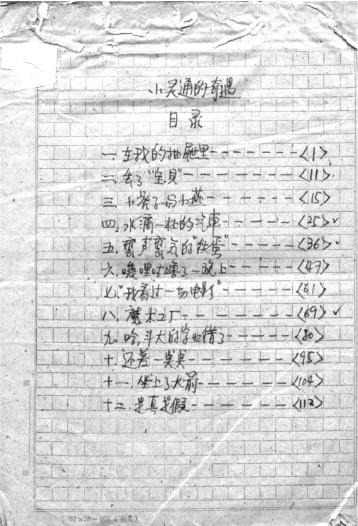 小灵通的奇遇
目录
一.在我的抽屉里------〈1〉
二.丢了"宝贝"------〈11〉
三.小 子与小燕------〈15〉
四.水滴一 的汽車------〈25〉✓
五. 声 气的"铁蛋"------〈36〉✓
六. 哩 了一晚上------〈47〉
七."我看过一 电影"------〈61〉
八.魔术工厂------〈69〉✓
九.哈,斗大的字也 了------〈80〉
十.还差一点点------〈95〉
十一.坐上了火箭------〈104〉
十二.是真是假------〈112〉